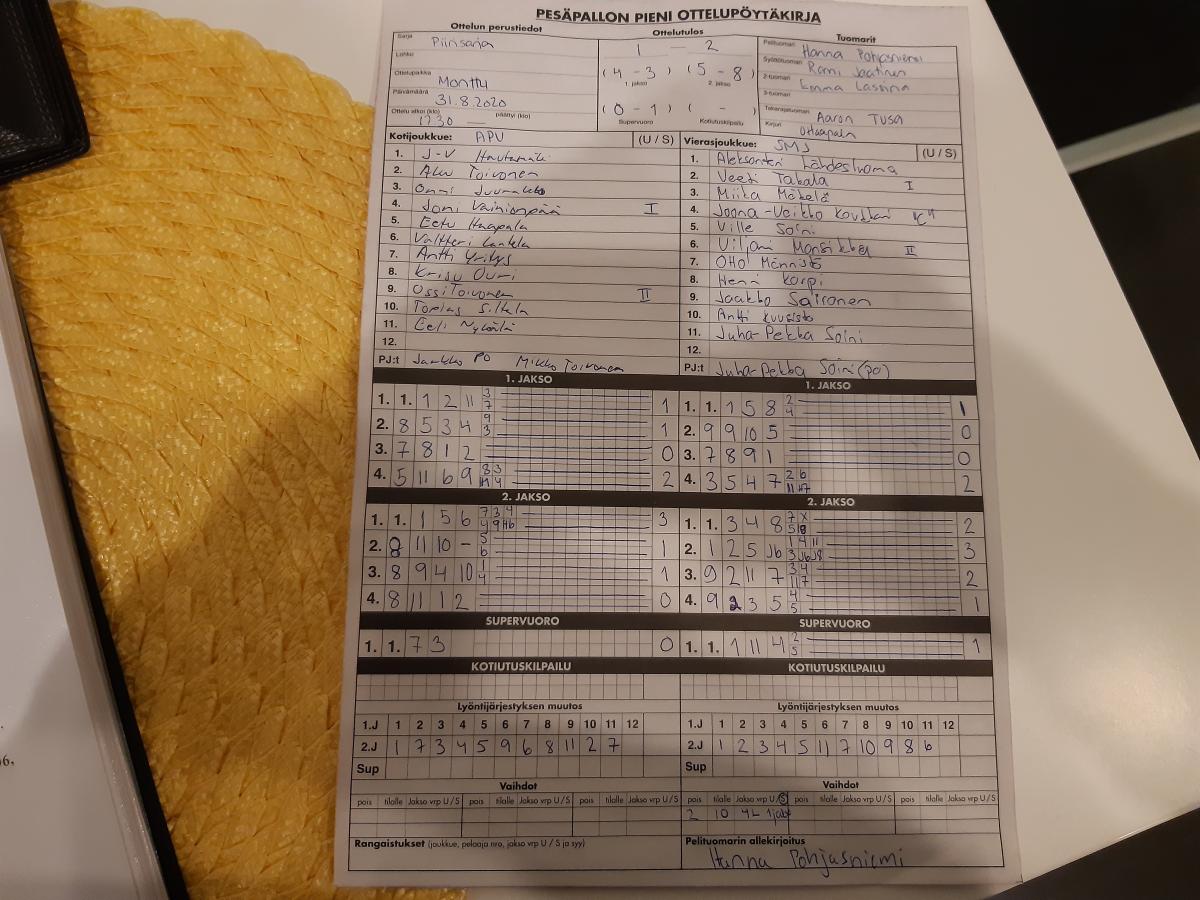 PESÄPALLON PIENI OTTELUPÖYTÄKIRJA
Ottelun perustiedot Ottelutulos Tuomarit
Sarja Piirisarja 1 – 2 Pelituomari Hanna Pohjasniemi
Lohko (4 – 3) (5 – 8) Syöttötuomari Romi Jaatinen
1. jakso 2. jakso 2-tuomari Emma
Ottelupaikka Monttu 3-tuomari
Päivämäärä 31.8.2020 (0 – 1) ( – ) Takarajatuomari Aaron Tusa
Ottelu alkoi (klo) 1730 päättyi (klo) — Supervuoro Kotiutuskilpailu Kirjuri
Kotijoukkue: APV (U / S) Vierasjoukkue: SMJ (U / S)
1. J-V Hautamäki 1. Aleksanteri Lähdesluoma
2. Aku Toivonen 2. Veeti Takala I
3. Onni 3. Miika Mäkelä
4. Joni Vainionpää I 4. Joona-Veikko "C"
5. Eetu Haapala 5. Ville Soini
6. Valtteri Lantela 6. Viljami II
7. Antti Yritys 7. Otto Männistö
8. Krisu Ouri 8. Henri Korpi
9. Ossi Toivonen II 9. Jaakko Saironen
10. Topias Siltala 10. Antti Kuusisto
11. Eeli 11. Juha-Pekka Soini
12. 12.
PJ:t Jaakko PO Mikko Toivonen PJ:t Juha-Pekka Soini (po)
1. JAKSO 1. JAKSO
1. 1. 1 2 11 3 7 1 1. 1. 1 5 8 2 4 1
2. 8 5 3 4 9 3 1 2. 9 9 10 5 0
3. 7 8 1 2 0 3. 7 8 9 1 0
4. 5 11 6 9 8 3 11 4 2 4. 3 5 4 7 2 6 11 7 2
2. JAKSO 2. JAKSO
1. 1. 1 5 6 7 3 4 3 1. 1. 3 4 8 7 X 2
2. 8 11 10 – 5 6 1 2. 1 2 5 J6 1 4 11 3 J6 J8 3
3. 8 9 4 10 1 4 1 3. 9 2 11 7 3 4 11 7 2
4. 8 11 1 2 0 4. 9 2 3 5 4 5 1
SUPERVUORO SUPERVUORO
1. 1. 7 3 0 1. 1. 1 11 4 2 5 1
KOTIUTUSKILPAILU KOTIUTUSKILPAILU
Lyöntijärjestyksen muutos Lyöntijärjestyksen muutos
1.J 1 2 3 4 5 6 7 8 9 10 11 12 1.J 1 2 3 4 5 6 7 8 9 10 11 12
2.J 1 7 3 4 5 9 6 8 11 2 7 2.J 1 2 3 4 5 11 7 10 9 8 6
Sup Sup
Vaihdot Vaihdot
pois tilalle Jakso vrp U / S pois tilalle Jakso vrp U / S pois tilalle Jakso vrp U / S pois tilalle Jakso vrp U / S pois tilalle Jakso vrp U / S pois tilalle Jakso vrp U / S
2 10 4L 1jakso
Rangaistukset (joukkue, pelaaja nro, jakso vrp U / S ja syy) Pelituomarin allekirjoitus
Hanna Pohjasniemi